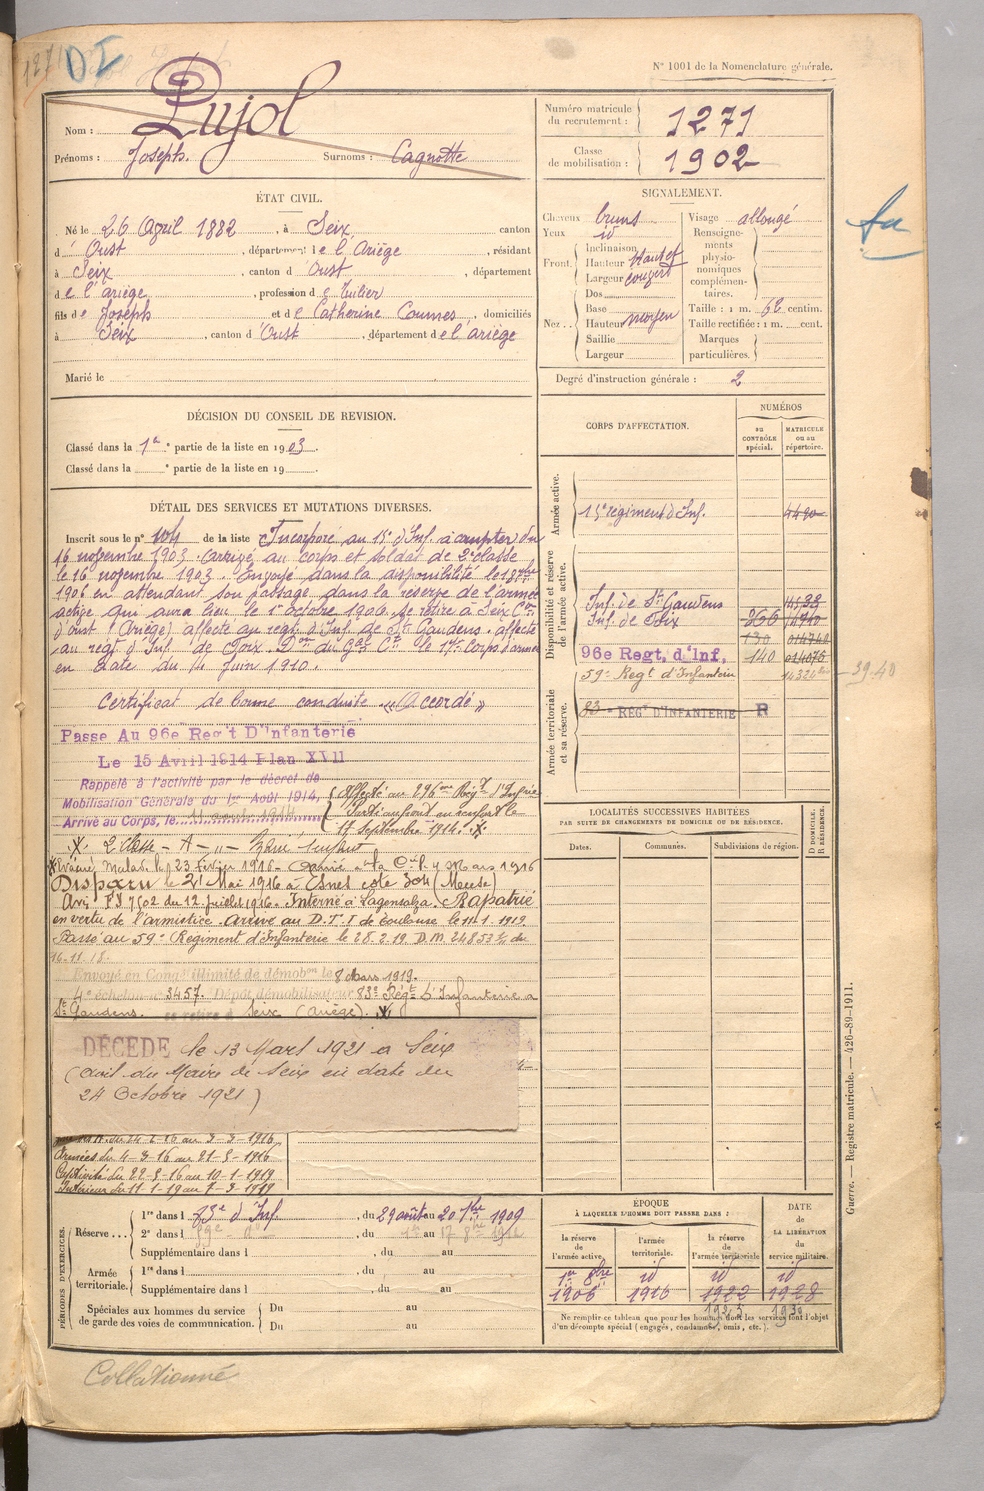 1271 DI
N° 1001 de la Nomenclature générale.
Nom : Pujol
Prénoms : Joseph. Surnoms : Cagnotte
Numéro matricule du recrutement : 1271
Classe de mobilisation : 1902
ÉTAT CIVIL.
Né le 26 Avril 1882, à Seix, canton
d'Oust, département de l'Ariège, résidant
à Seix, canton d'Oust, département
de l'ariège, profession de Tuilier
fils de Joseph et de Catherine Coumes, domiciliés
à Seix, canton d'Oust, département de l'ariège
Marié le
SIGNALEMENT.
Cheveux bruns
Yeux id
Front. Inclinaison
Hauteur haut et
Largeur couvert
Nez.. Dos
Base
Hauteur moyen
Saillie
Largeur
Visage allongé
Renseignements physionomiques complémentaires.
Taille : 1 m. 62 centim.
Taille rectifiée : 1 m. cent.
Marques particulières.
Degré d'instruction générale : 2
DÉCISION DU CONSEIL DE REVISION.
Classé dans la 1re partie de la liste en 1903.
Classé dans la e partie de la liste en 19
DÉTAIL DES SERVICES ET MUTATIONS DIVERSES.
Inscrit sous le n° de la liste Incorporé au 15e d'Inf. à compter du
16 novembre 1903. Arrivé au corps et soldat de 2e classe
le 16 novembre 1903. Envoyé dans la disponibilité le 18 7bre
1906 en attendant son passage dans la réserve de l'armée
active qui aura lieu le 1er octobre 1906. Se retire à Seix Con
d'oust (Ariège) affecté au regt d'Inf. de St Gaudens. affecté
au regt d'Inf. de Foix. Don du Gal Ct le 17e Corps d'armée
en date du 4 Juin 1910.
Certificat de bonne conduite « Accordé »
Passé Au 96e Reg't D'Infanterie
Le 15 Avril 1914 Plan XVII
Rappelé à l'activité par le décret de
Mobilisation Générale du 1er Août 1914,
Arrivé au Corps, le 11 août 1914
Affecté au 296me Régt d'Infrie
Parti au front en renfort le
17 septembre 1914.
2e Classe - A -
Evacué Malade le 23 Février 1916 - 4 Mars 1916
Disparu le 21 Mai 1916 à Esnes cote 304 (Meuse)
Avis 7602 du 12 Juillet 1916. Interné à Langensalza. Rapatrié
en vertu de l'armistice. Arrivé au D.T.I de Toulouse le 11.1.1919.
Passé au 59e Regiment d'Infanterie le 28.2.19. D.M. 24853 du
16-11-18.
Envoyé en Congé illimité de démobon le 8 Mars 1919.
4e échelon n° 3457. Dépôt démobilisateur 83e Régt d'Infanterie à
St Gaudens. se retire à Seix (Ariège).
DÉCÉDÉ le 13 Mars 1921 à Seix
(avis du Maire de Seix en date du
24 Octobre 1921)
Armées du 4-3-16 au 21-5-1916
Captivité du 22-5-16 au 10-1-1919
Intérieur du 11-1-19 au 7-3-1919
CORPS D'AFFECTATION.
NUMÉROS
au CONTRÔLE spécial.
MATRICULE ou au répertoire.
Armée active.
15e régiment d'Inf. 4490
Disponibilité et réserve de l'armée active.
Inf. de St Gaudens
Inf. de Foix 266
130
96e Regt. d'Inf. 140 014075
59e Regt d'Infanterie 14324bis 39.40
Armée territoriale et sa réserve.
83e REGT D'INFANTERIE R
LOCALITÉS SUCCESSIVES HABITÉES
PAR SUITE DE CHANGEMENTS DE DOMICILE OU DE RÉSIDENCE.
Dates. Communes. Subdivisions du région. D DOMICILE. R RÉSIDENCE.
PÉRIODES D'EXERCICES.
Réserve... 1re dans l 83e d'Inf., du 29 août au 20 7bre 1909
2e dans l 59e - do, du au 17 8bre 1912
Supplémentaire dans l, du au
Armée territoriale. 1re dans l, du au
Supplémentaire dans l, du au
Spéciales aux hommes du service de garde des voies de communication. Du au
Du au
ÉPOQUE
À LAQUELLE L'HOMME DOIT PASSER DANS :
la réserve de l'armée active,
l'armée territoriale.
la réserve de l'armée territoriale
DATE de LA LIBÉRATION du service militaire.
1er 8bre 1906 id 1916 id 1922 id 1928
Ne remplir ce tableau que pour les hommes dont les services font l'objet
d'un décompte spécial (engagés, condamnés, omis, etc.).
Guerre. — Registre matricule. — 426-89-1911.
Collationné